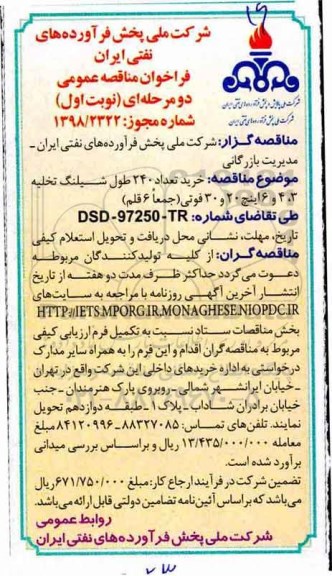 شرکت ملی پخش فرآورده‌های
نفتی ایران
فراخوان مناقصه عمومی
دو مرحله‌ای (نوبت اول)
شماره مجوز: ۱۳۹۸/۲۳۲۲
شرکت ملی پالایش و پخش فرآورده‌های نفتی ایران
شرکت ملی پخش فرآورده‌های نفتی ایران
مناقصه گزار: شرکت ملی پخش فرآورده‌های نفتی ایران -
مدیریت بازرگانی
موضوع مناقصه: خرید تعداد ۲۴۰ طول شیلنگ تخلیه
۳، ۴ و ۶ اینچ ۲۰ و ۳۰ فوتی (جمعاً ۶ قلم)
طی تقاضای شماره: DSD -97250 -TR
تاریخ، مهلت، نشانی محل دریافت و تحویل استعلام کیفی
مناقصه گران: از کلیه تولیدکنندگان مربوطه
دعوت می‌گردد حداکثر ظرف مدت دو هفته از تاریخ
انتشار آخرین آگهی روزنامه با مراجعه به سایت‌های
HTTP://IETS.MPORG.IR.MONAGHESE.NIOPDC.IR
بخش مناقصات ستاد نسبت به تکمیل فرم ارزیابی کیفی
مربوط به مناقصه گران اقدام و این فرم را به همراه سایر مدارک
درخواستی به اداره خریدهای داخلی این شرکت واقع در تهران
- خیابان ایرانشهر شمالی - روبروی پارک هنرمندان - جنب
خیابان برادران شاداب - پلاک ۱ - طبقه دوازدهم تحویل
نمایند. تلفن های تماس: ۸۸۳۲۷۰۸۵ - ۸۴۱۲۰۹۹۶ مبلغ
معامله ۱۳/۴۳۵/۰۰۰/۰۰۰ ریال و براساس بررسی میدانی
برآورد شده است.
تضمین شرکت در فرآیند ارجاع کار: مبلغ ۶۷۱/۷۵۰/۰۰۰ ریال
می‌باشد که براساس آئین نامه تضامین دولتی قابل ارائه می‌باشد.
روابط عمومی
شرکت ملی پخش فرآورده‌های نفتی ایران